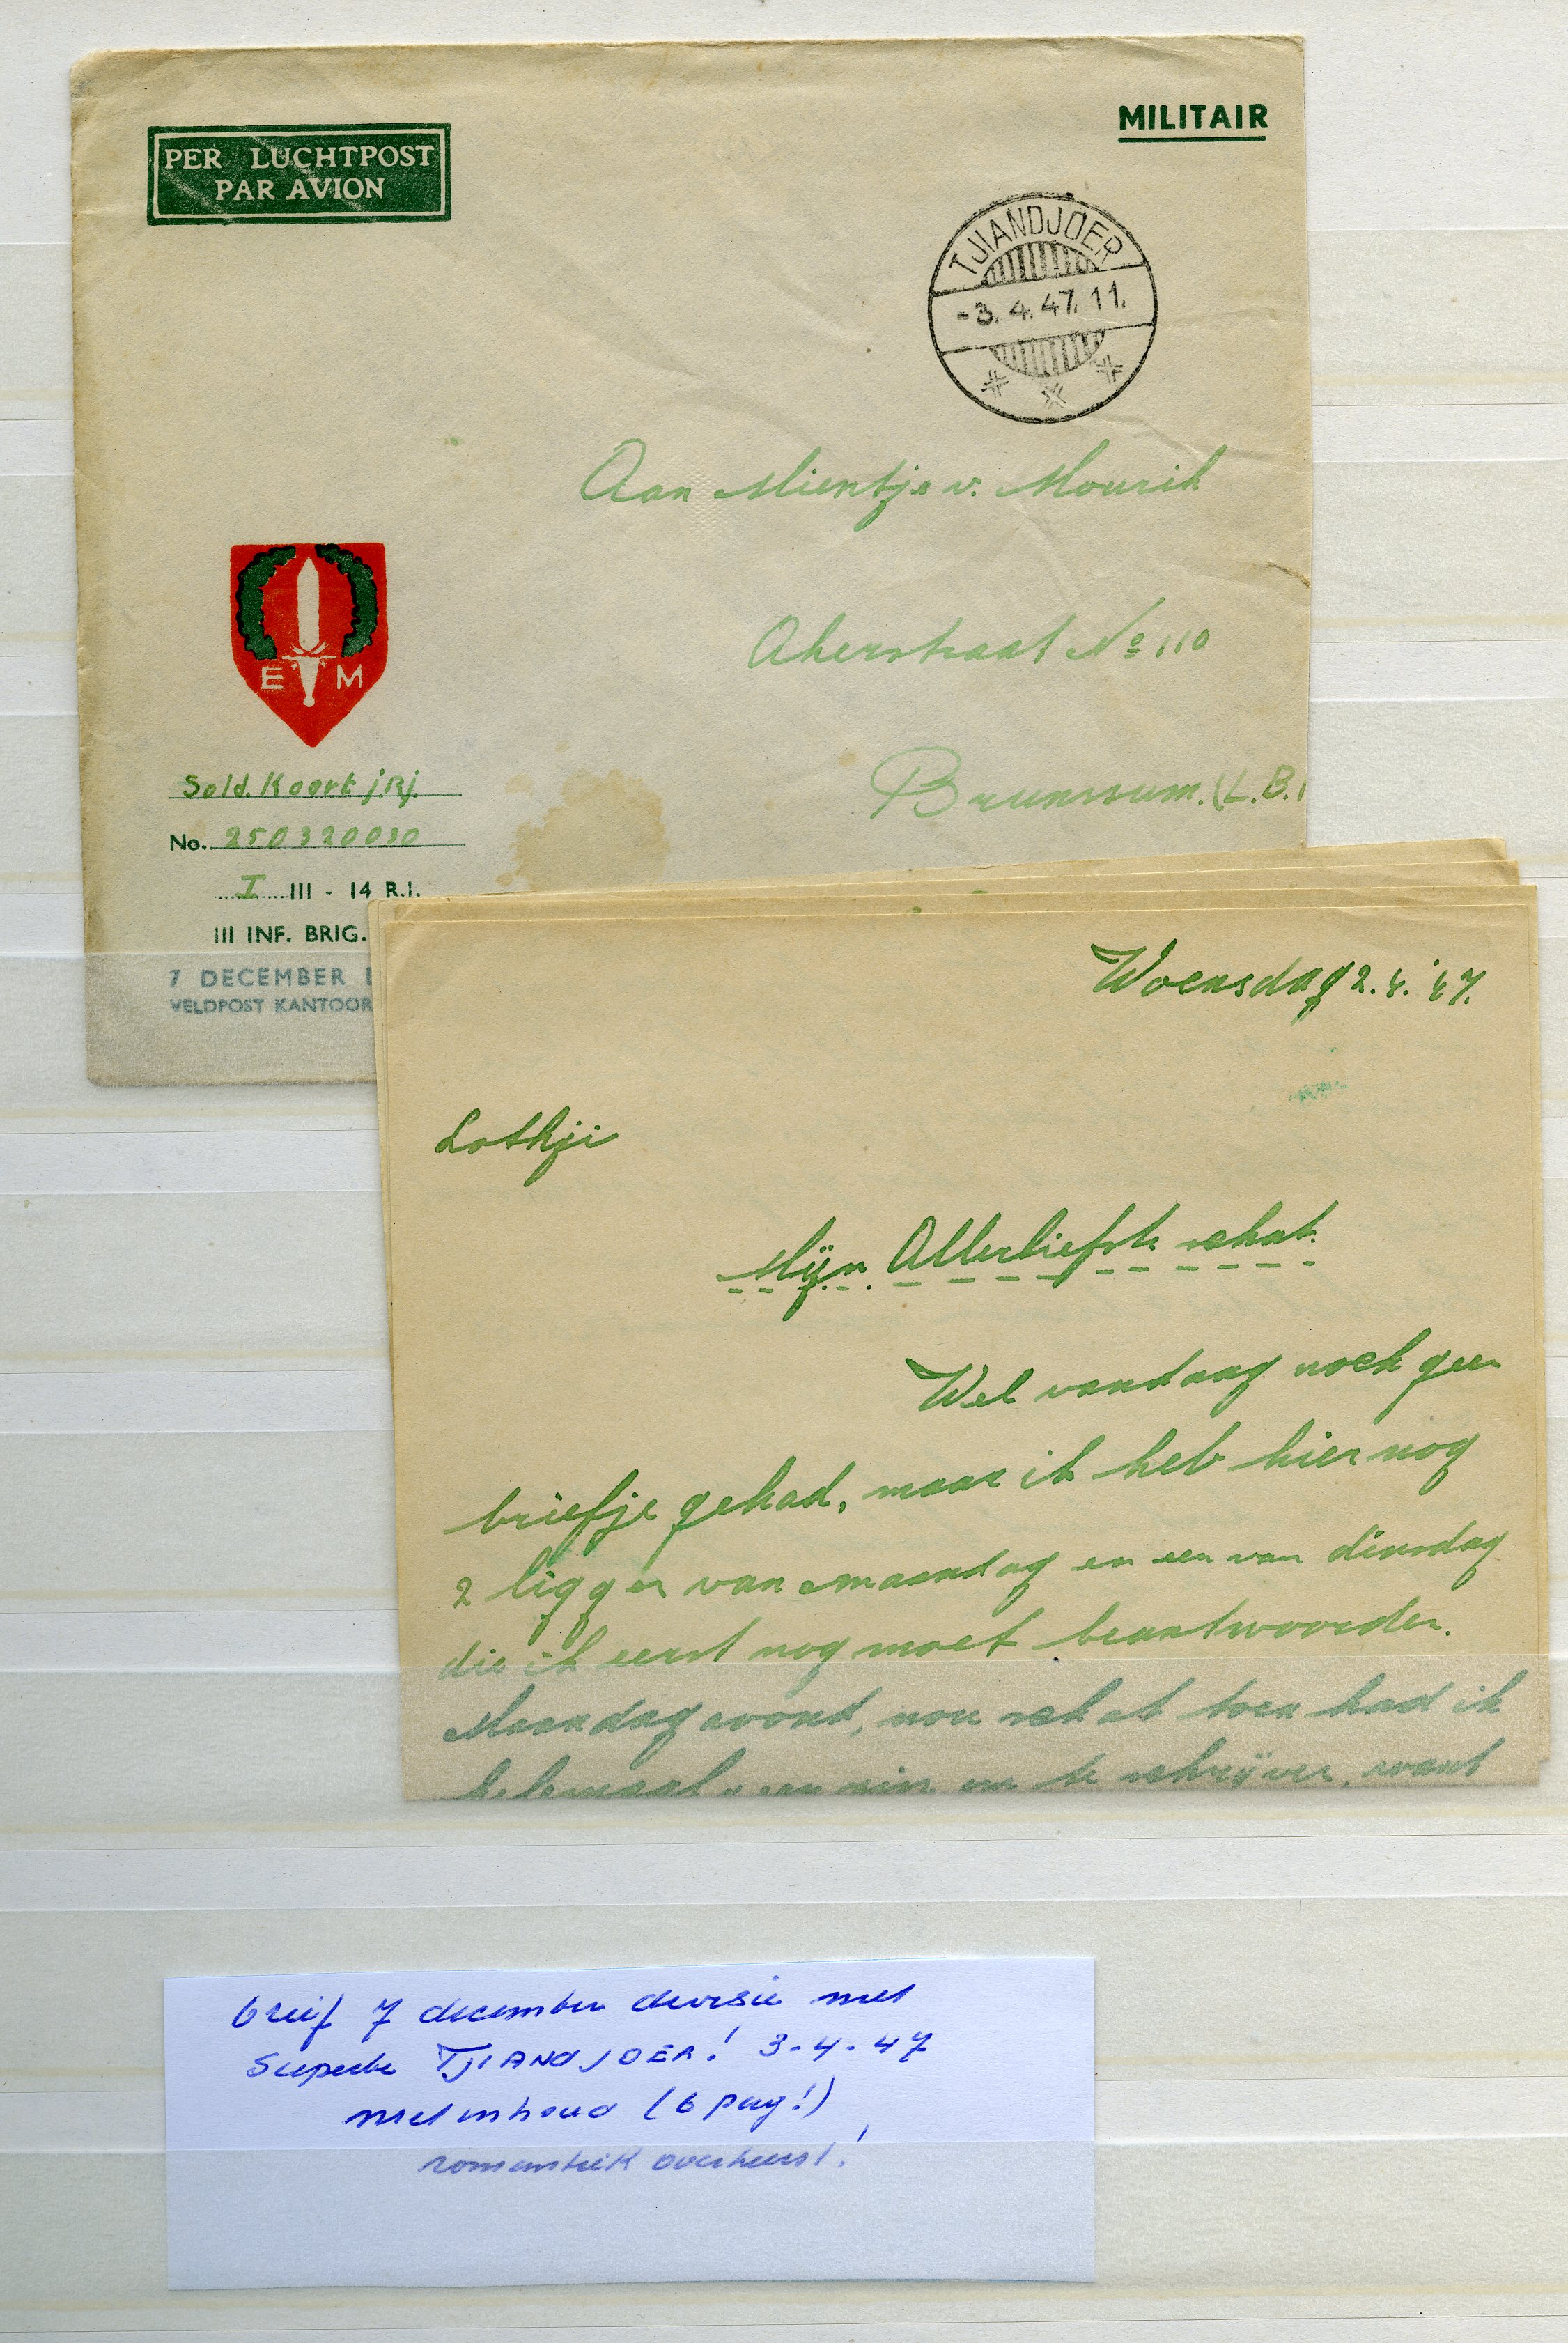 MILITAIR
PER LUCHTPOST
PAR AVION
TJIANDJOER
-3.4.47.11.
Aan Mientje v. Mourik
Akerstraat No 110
Brunssum. (L.B.)
E M
Sold. Koort j.Rj.
No. 250320030
I III - 14 R.I.
III INF. BRIG.
7 DECEMBER
VELDPOST KANTOOR
Woensdag 2.4.'47.
Mijn Allerliefste schat.
Wel vandaag noch geen
briefje gehad, maar ik heb hier nog
2 liggen van maandag en een van dinsdag
die ik eerst nog moet beantwoorden.
Maandagavond, nou schat toen had ik
helemaal geen zin om te schrijven, want
brief 7 december divisie met
Superbe TJIANDJOER! 3-4-47
met inhoud (6 pag!)
romantiek overheerst!